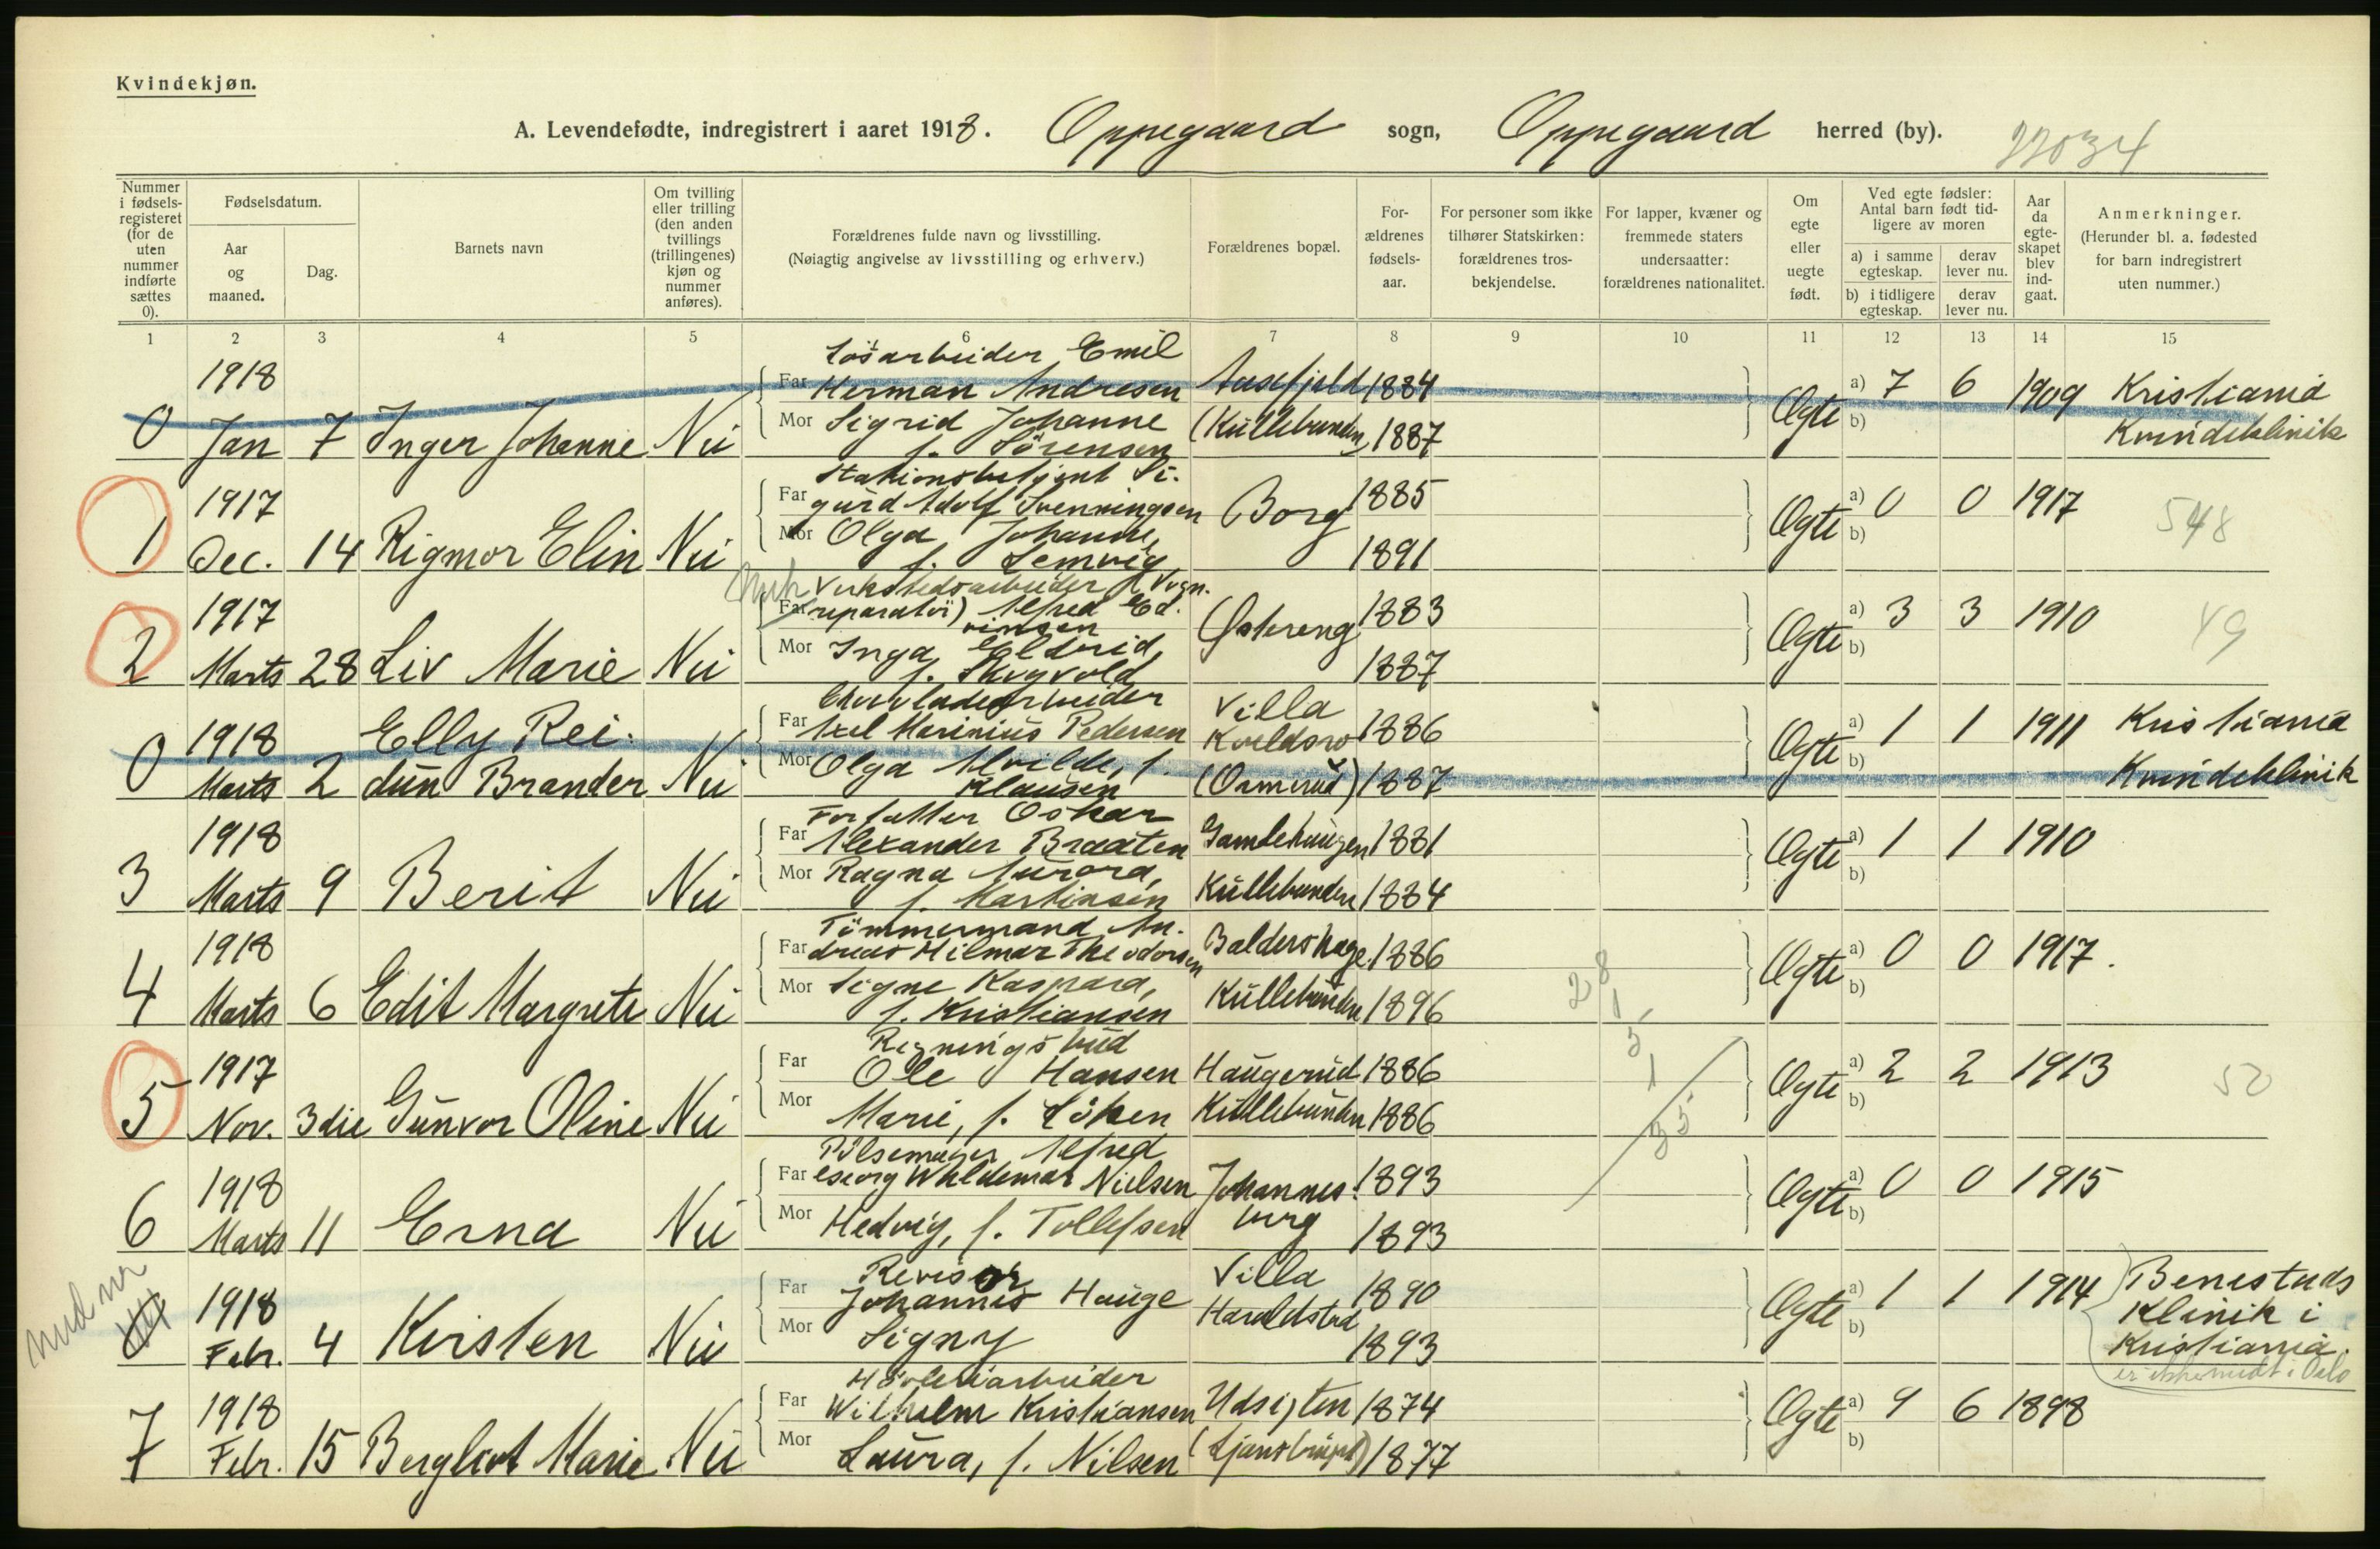 Kvindekjøn.
A. Levendefødte, indregistrert i aaret 1918. Oppegaard sogn, Oppegaard herred (by).
Nummer i fødsels-registeret (for de uten nummer indførte sættes 0).
Fødselsdatum.
Aar og maaned.
Dag.
Barnets navn
Om tvilling eller trilling (den anden tvillings (trillingenes) kjøn og nummer anføres).
Forældrenes fulde navn og livsstilling.
(Nøiagtig angivelse av livsstilling og erhverv.)
Forældrenes bopæl.
For-ældrenes fødsels-aar.
For personer som ikke tilhører Statskirken: forældrenes tros-bekjendelse.
For lapper, kvæner og fremmede staters undersaatter: forældrenes nationalitet.
Om egte eller uegte født.
Ved egte fødsler: Antal barn født tid-ligere av moren
a) i samme egteskap. derav lever nu.
b) i tidligere egteskap. derav lever nu.
Aar da egte-skapet blev ind-gaat.
Anmerkninger.
(Herunder bl. a. fødested for barn indregistrert uten nummer.)
1 2 3 4 5 6 7 8 9 10 11 12 13 14 15
Løsarbeider Emil
1918 Far Herman Andresen Aasefjeld 1884 a) 7 6 1909 Kristiania
0 Jan 7 Inger Johanne Nei Mor Sigrid Johanne (Kullebunden) 1887 Ægte b) Kvindeklinik
f. Sørensen
Stationsbetjent Si-
1917 Far gurd Adolf Svenningsen Borg 1885 a) 0 0 1917 548
1 Dec. 14 Rigmor Elin Nei Mor Olga Johanne, 1891 Ægte b)
f. Lemvig
Verkstedsarbeider (Vogn-
1917 Far reparatør) Alfred Ed- Østreng 1883 a) 3 3 1910 49
vinsen
2 Marts 28 Liv Marie Nei Mor Inga Eldrid, 1887 Ægte b)
f. Skogvold
Chocoladearbeider
1918 Elly Rei- Far Axel Marinius Pedersen Villa Kveldsro 1886 a) 1 1 1911 Kristiania
0 Marts 2 dun Brander Nei Mor Olga Alvilde, f. (Ormerud) 1887 Ægte b) Kvindeklinik
Klausen
Forfatter Oskar
1918 Far Alexander Braaten Gamlehaugen 1881 a) 1 1 1910
3 Marts 9 Berit Nei Mor Ragna Aurora, Kullebunden 1884 Ægte b)
f. Martinsen
Tømmermand An-
1918 Far dreas Hilmar Theodorsen Baldershage 1886 a) 0 0 1917.
4 Marts 6 Edit Margrete Nei Mor Signe Kaspara, Kullebunden 1896 Ægte b)
f. Kristiansen
28
1
5
1
35
Regningsbud
1917 Far Ole Hansen Haugerud 1886 a) 2 2 1913 50
5 Nov. 3die Gunvor Oline Nei Mor Marie, f. Løken Kullebunden 1886 Ægte b)
Pølsemager Alfred
1918 Far Georg Waldemar Nielsen Johannes- 1893 a) 0 0 1915
6 Marts 11 Erna Nei Mor Hedvig, f. Tollefsen burg 1893 Ægte b)
Revisor
1918 Far Johannes Hauge Villa Haraldstad 1890 a) 1 1 1914 Benestads
Klinik i
Febr. 4 Kirsten Nei Mor Signy 1893 Ægte b) Kristiania.
Høvleriarbeider
1918 Far Wilhelm Kristiansen Udsigten 1874 a) 9 6 1898
7 Febr. 15 Bergliot Marie Nei Mor Laura, f. Nilsen 1877 Ægte b)